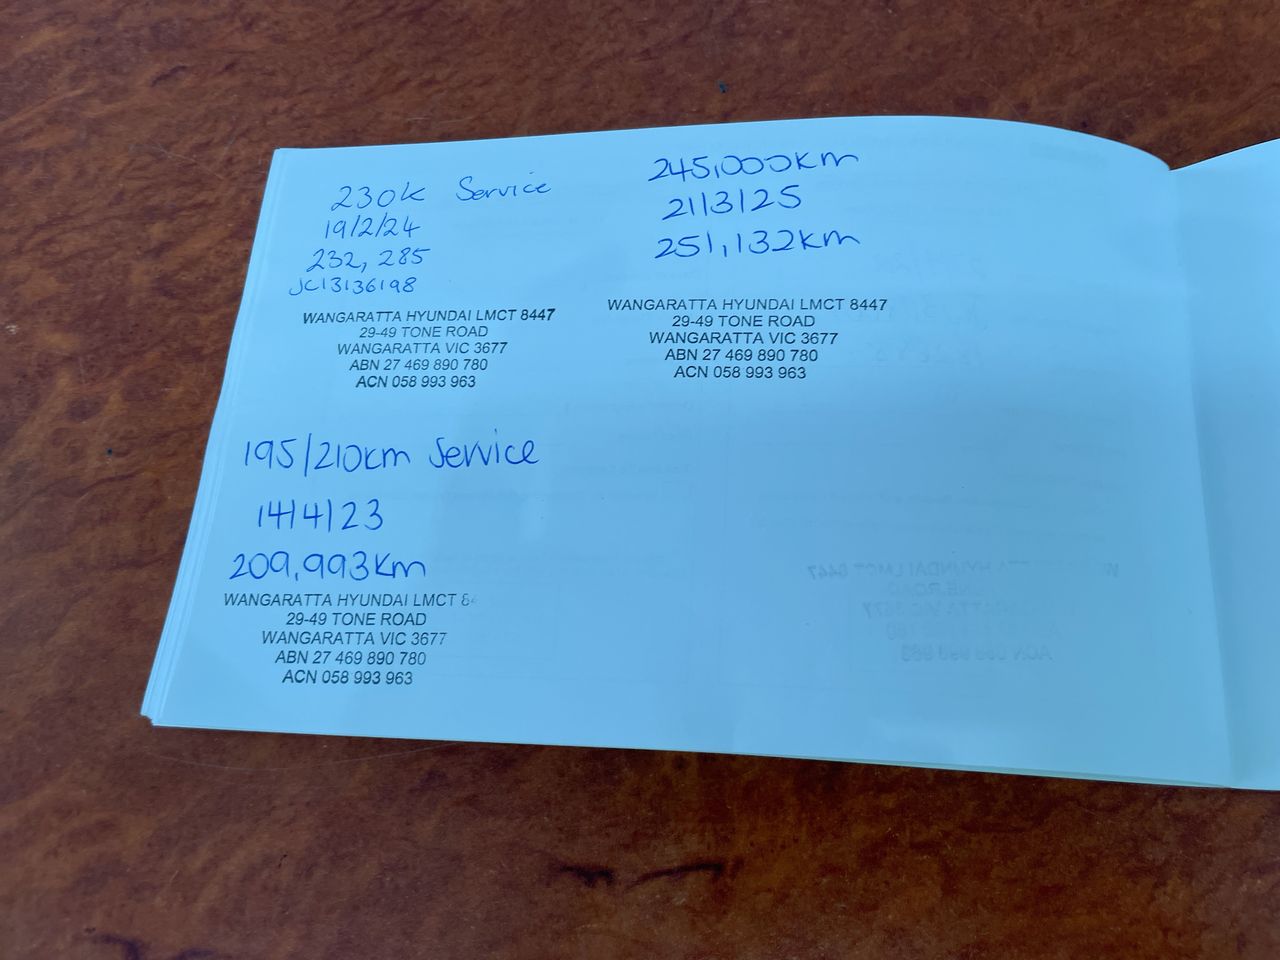 230k Service
19/2/24
232, 285
JC13136198
WANGARATTA HYUNDAI LMCT 8447
29-49 TONE ROAD
WANGARATTA VIC 3677
ABN 27 469 890 780
ACN 058 993 963
245,000km
21/3/25
251,132km
WANGARATTA HYUNDAI LMCT 8447
29-49 TONE ROAD
WANGARATTA VIC 3677
ABN 27 469 890 780
ACN 058 993 963
195/210km Service
14/4/23
209,993km
WANGARATTA HYUNDAI LMCT 84
29-49 TONE ROAD
WANGARATTA VIC 3677
ABN 27 469 890 780
ACN 058 993 963